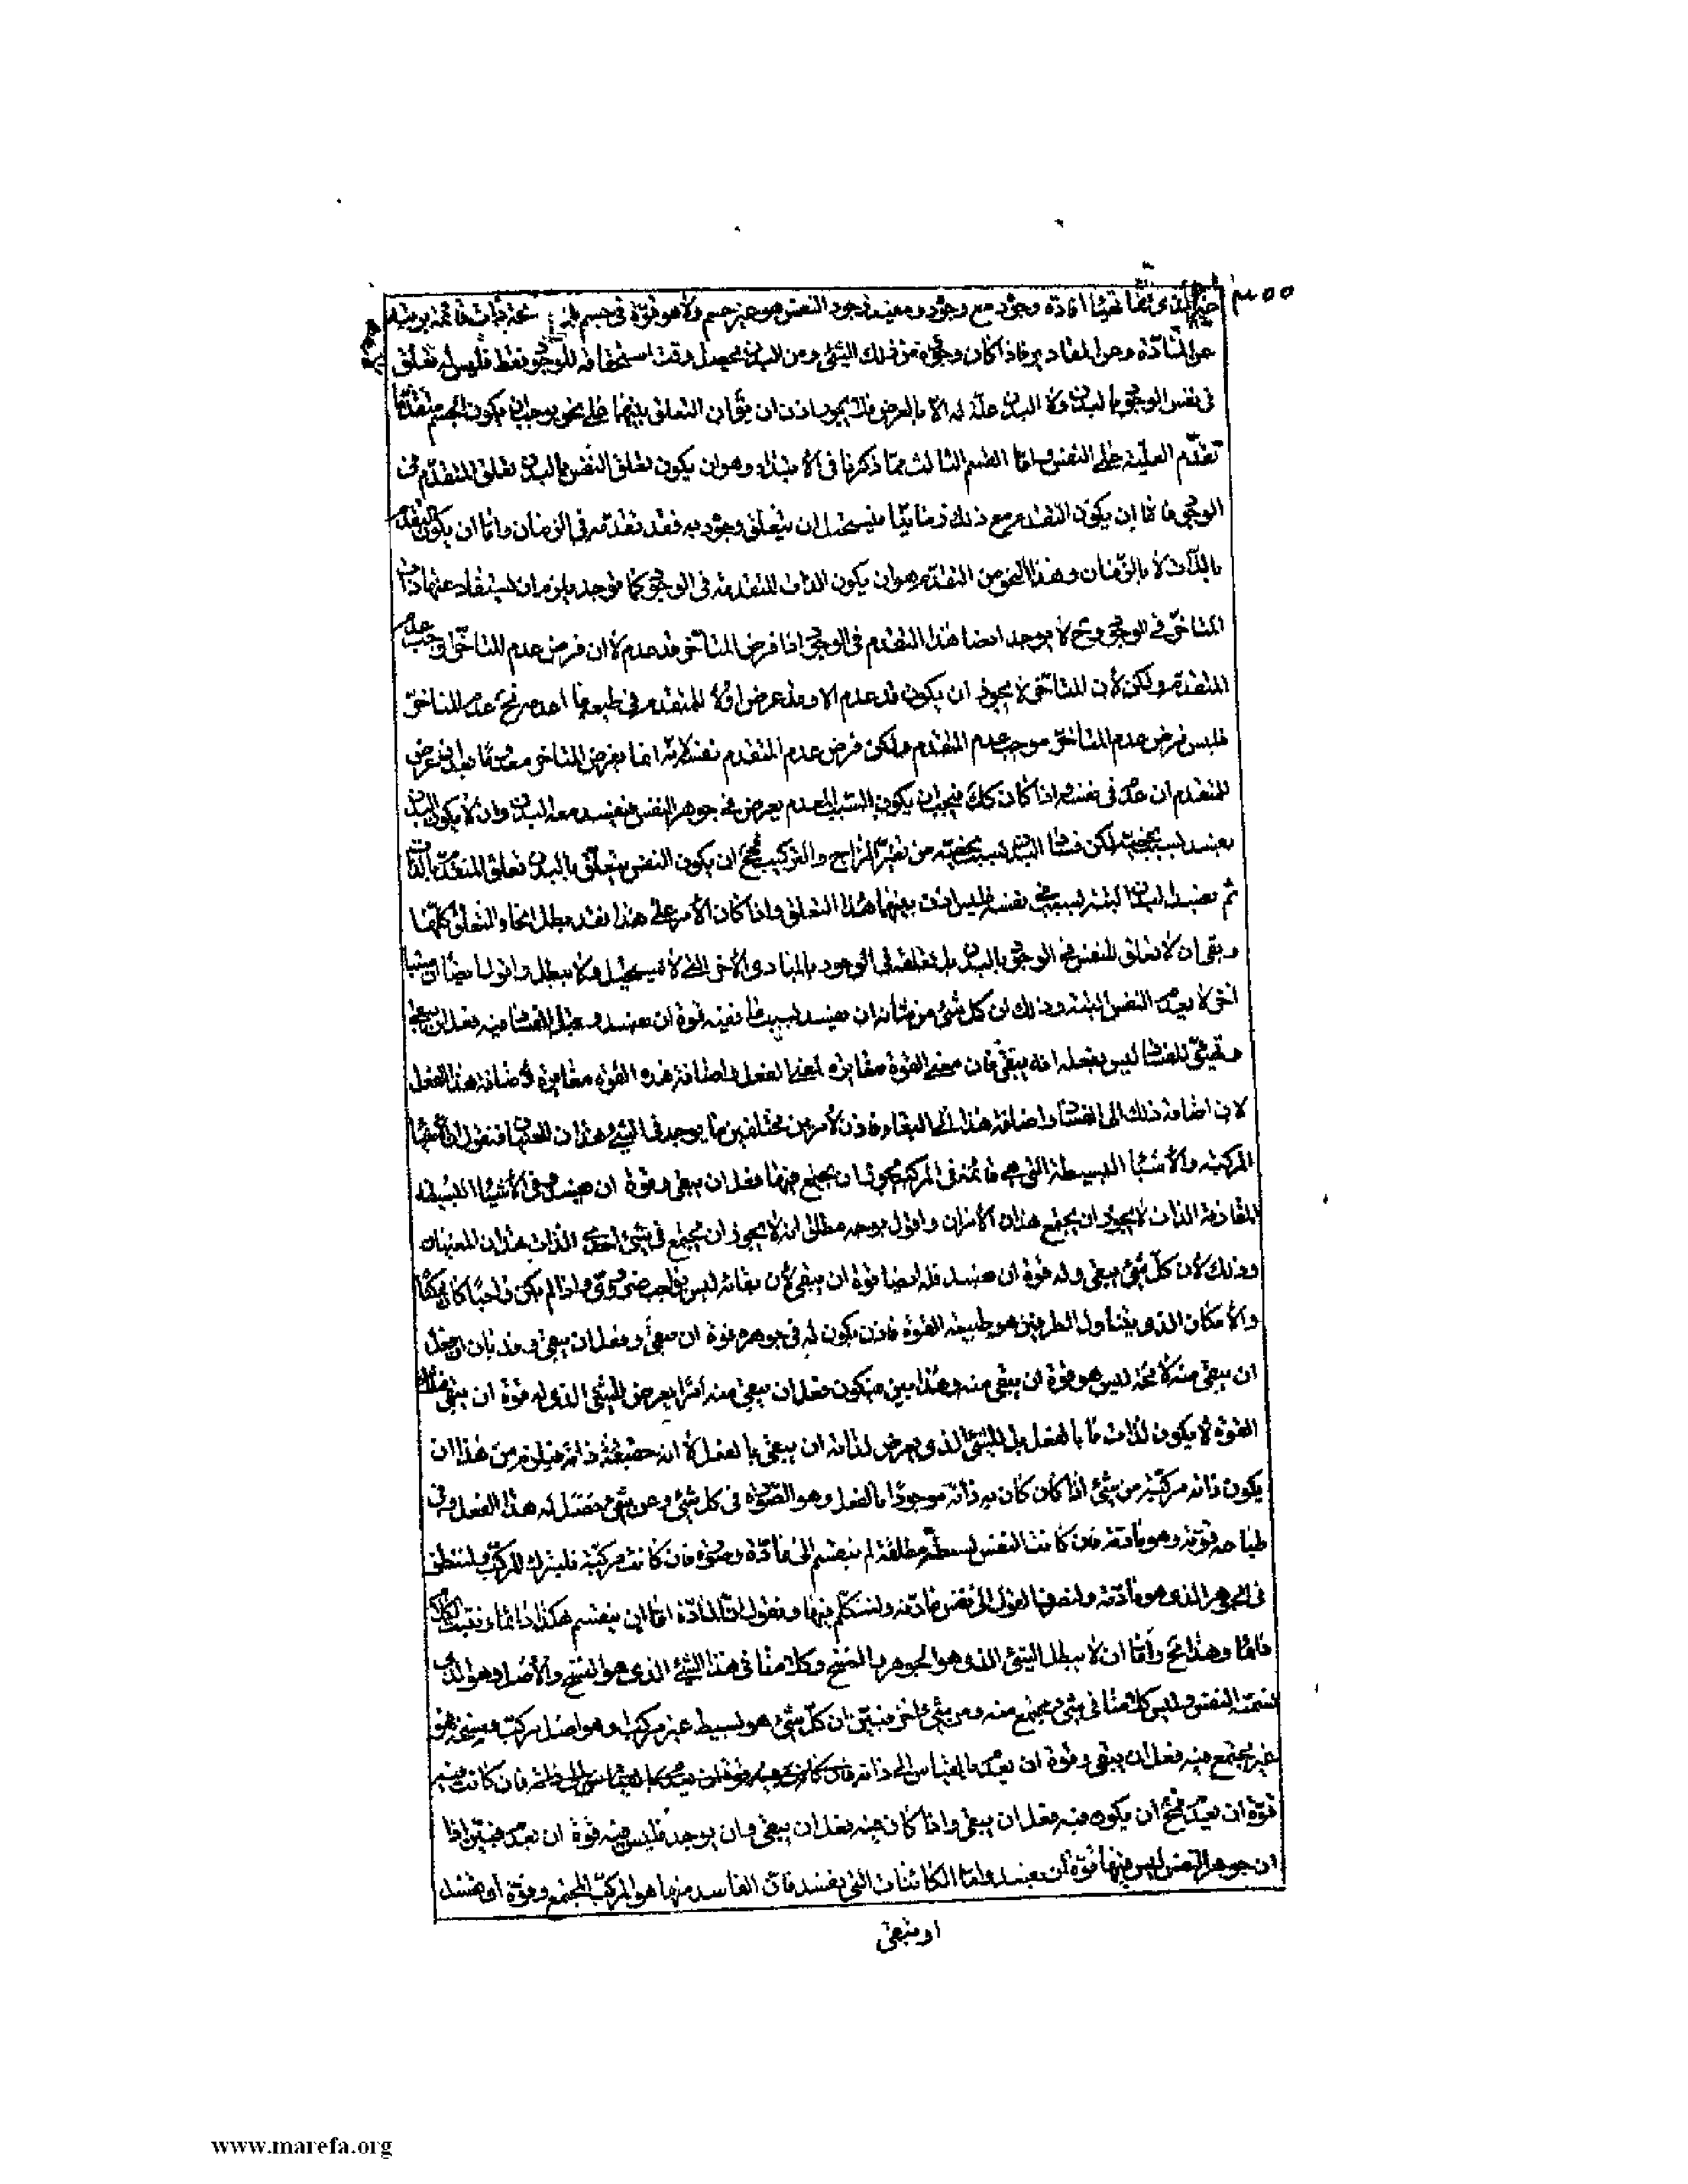 ٣٥٥
وجود مع وجود ومفيد وجود النفس هو غير جسم ولا هو قوة في جسم
عن المادة وعن المقادير فاذا كان وجوده من ذلك الشئ ومن البدن يحصل وقت استحقاقه للوجود فقط فليس له تعلق
في نفس الوجود بالبدن ولا البدن علة له الا بالعرض فلا يجوز اذن ان يقال ان التعلق بينهما على نحو يوجب ان يكون الجسم متقدما
تقدم العلية على النفس واما القسم الثالث مما ذكرنا في الابتداء وهو ان يكون تعلق النفس بالبدن تعلق المتقدم في
الوجود فاما ان يكون التقدم مع ذلك زمانيا فيستحيل ان يتعلق وجوده به فقد تقدمه في الزمان واما ان يكون التقدم
بالذات لا بالزمان وهذا النحو من التقدم هو ان يكون الذات المتقدمة في الوجود كما توجد يلزم ان يستفاد عنها ذات
المتاخر في الوجود وح لا يوجد ايضا هذا المتقدم في الوجود اذا فرض المتاخر قد عدم لا ان فرض عدم المتاخر اوجب عدم
المتقدم ولكن لان المتاخر لا يجوز ان يكون قد عدم الا وقد عرض اولا للمتقدم في طبعه ما اعدمه فح عدم المتاخر
فليس فرض عدم المتاخر موجب عدم المتقدم ولكن فرض عدم المتقدم نفسه لانه انما يفرض المتاخر معدوما بعد ان عرض
للمتقدم ان عدم في نفسه اذا كان كك فيجب ان يكون السبب المعدم يعرض في جوهر النفس فيفسد معه البدن وان لا يكون البدن
يفسد بسبب يخصه لكن فساد البدن بسبب يخصه من تغير المزاج والتركيب فمح ان يكون النفس يتعلق بالبدن تعلق المتقدم بالذات
ثم يفسد البدن البتة بسبب في نفسه فليس اذن بينهما هذا التعلق واذا كان الامر على هذا فقد بطل انحاء التعلق كلها
وبقي ان لا تعلق للنفس في الوجود بالبدن بل تعلقه في الوجود بالمبادي الاخر التي لا تستحيل ولا تبطل واقول ايضا ان سببا
اخر لا يعدم النفس البتة وذلك ان كل شئ من شانه ان يفسد بسبب ما ففيه قوة ان يفسد وقبل الفساد فيه فعل ان يبقى
وتهيئ للفساد ليس بفعله انه يبقى فان معنى القوة مغايرة لمعنى الفعل واضافة هذه القوة مغايرة لاضافة هذا الفعل
لان اضافة ذلك الى الفساد واضافة هذا الى البقاء فاذن لامرين مختلفين ما يوجد في الشئ هذان المعنيان فنقول ان الاشياء
المركبة والاشياء البسيطة التي هي قائمة في المركبة يجوز ان يجتمع فيها فعل ان يبقى وقوة ان يفسد وفي الاشياء البسيطة
المفارقة الذات لا يجوز ان يجتمع هذان الامران واقول بوجه مطلق انه لا يجوز ان يجتمع في شئ احدي الذات هذان المعنيان
وذلك لان كل شئ يبقى وله قوة ان يفسد فله ايضا قوة ان يبقى لان بقائه ليس بواجب ضروري واذا لم يكن واجبا كان ممكنا
والامكان الذي يتناول الطرفين هو طبيعة القوة فاذن يكون له في جوهره قوة ان يبقى وفعل ان يبقى وقد بان ان فعل
ان يبقى منه لا محة ليس هو قوة ان يبقى منه وهذا بين فيكون فعل ان يبقى منه امرا يعرض للشئ الذي له قوة ان يبقى فتلك
القوة لا يكون لذات ما بالفعل بل للشئ الذي يعرض لذاته ان يبقى بالفعل لا انه حقيقة ذاته فيلزم من هذا ان
يكون ذاته مركبة من شئ اذا كان كان به ذاته موجودا بالفعل وهو الصورة في كل شئ وعن شئ حصل له هذا الفعل وفي
طباعه قوته وهو مادته فان كانت النفس بسيطة مطلقة لم ينقسم الى مادة وصورة فان كانت مركبة فليترك المركب ولننظر
في الجوهر الذي هو مادته ولنصرف القول الى نفس مادته ولنتكلم فيها ونقول ان المادة اما ان ينقسم هكذا دائما ونثبت الكلام
دائما وهذا مح واما ان لا يبطل الشئ الذي هو الجوهر والسنخ وكلامنا في هذا الشئ الذي هو السنخ والاصل وهو الذي
نسميه النفس وليس كلامنا في شئ يجتمع منه ومن شئ اخر فبين ان كل شئ هو بسيط غير مركب او هو اصل مركب وسنخه فهو
غير مجتمع فيه فعل ان يبقى وقوة ان يعدم بالقياس الى ذاته فان كانت فيه
قوة ان يعدم فمح ان يكون فيه فعل ان يبقى واذا كان فيه فعل ان يبقى وان يوجد فليس فيه قوة ان يعدم فبين اذا
ان جوهر النفس ليس فيها قوة ان يفسد واما الكائنات التي تفسد فان الفاسد منها هو المركب المجتمع وقوة ان يفسد
او يبقى
www.marefa.org